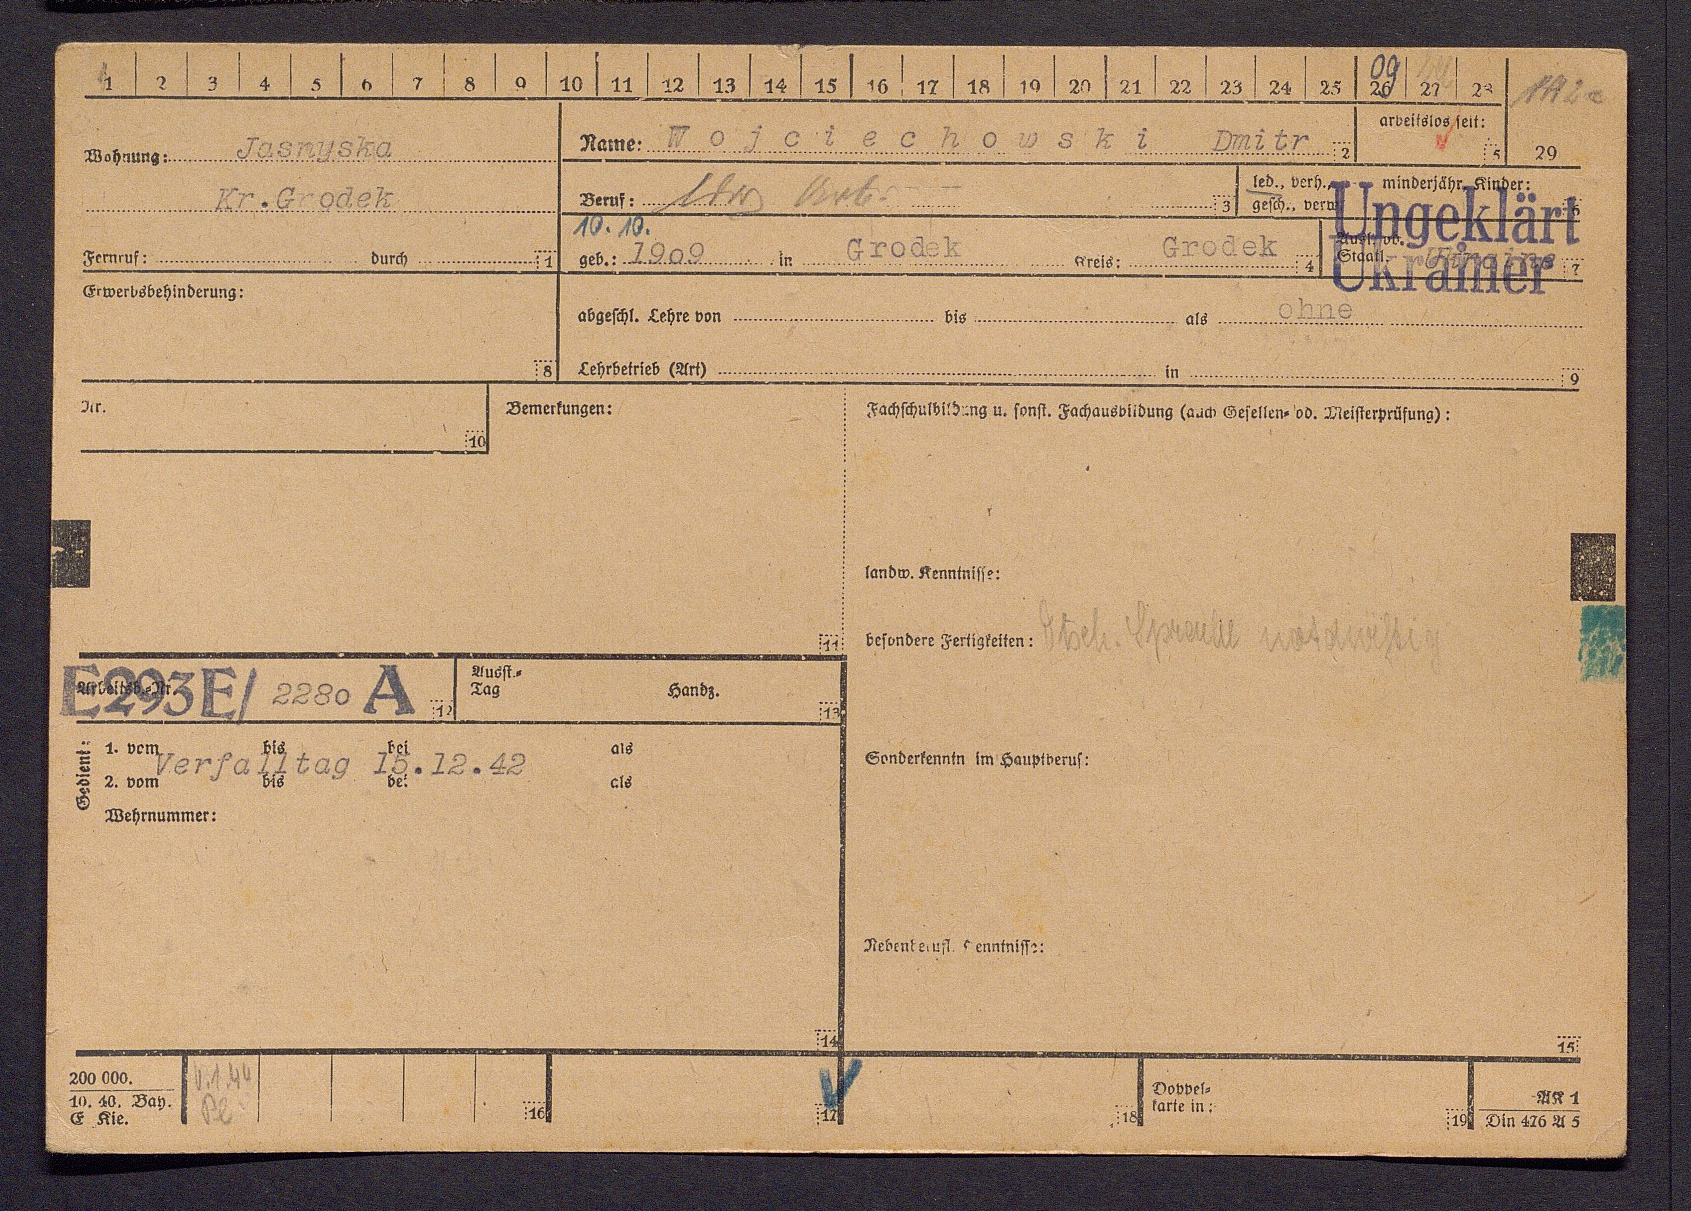 1 2 3 4 5 6 7 8 9 10 11 12 13 14 15 16 17 18 19 20 21 22 23 24 25 26 27 28
09
Wohnung: Jasnyska
Kr.Grodek
Fernruf: durch 1
Name: Wojciechowski Dmitr 2
arbeitslos seit: 5
29
Beruf: 3
led., verh., minderjähr. Kinder:
gesch., verw. 6
Ungeklärt
10.10.
geb.: 1909 in Grodek Kreis: Grodek 4
Staatl. Ukraine 7
Ukrainer
Erwerbsbehinderung:
8
abgeschl. Lehre von bis als ohne
Lehrbetrieb (Art) in 9
Nr. 10
Bemerkungen:
11
Fachschulbildung u. sonst. Fachausbildung (auch Gesellen- od. Meisterprüfung):
landw. Kenntnisse:
besondere Fertigkeiten: Dtsch. Sprache notdürftig
Sonderkenntn im Hauptberuf:
Nebenberufl. Kenntnisse:
15
Arbeitsb.-Nr. E293E/ 2280 A 12
Ausst.-
Tag Handz. 13
Gedient:
1. vom bis bei als
Verfalltag 15.12.42
2. vom bis bei als
Wehrnummer:
14
200 000.
10. 40. Bay.
E Kie.
16
17
18
Doppel-
karte in: 19
AK 1
Din 476 A 5